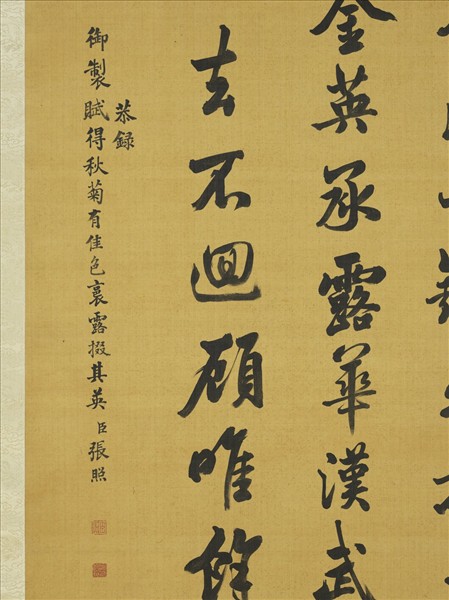 金英承露華漢武
去不迴顧唯餘
恭錄
御製賦得秋菊有佳色裛露掇其英 臣張照